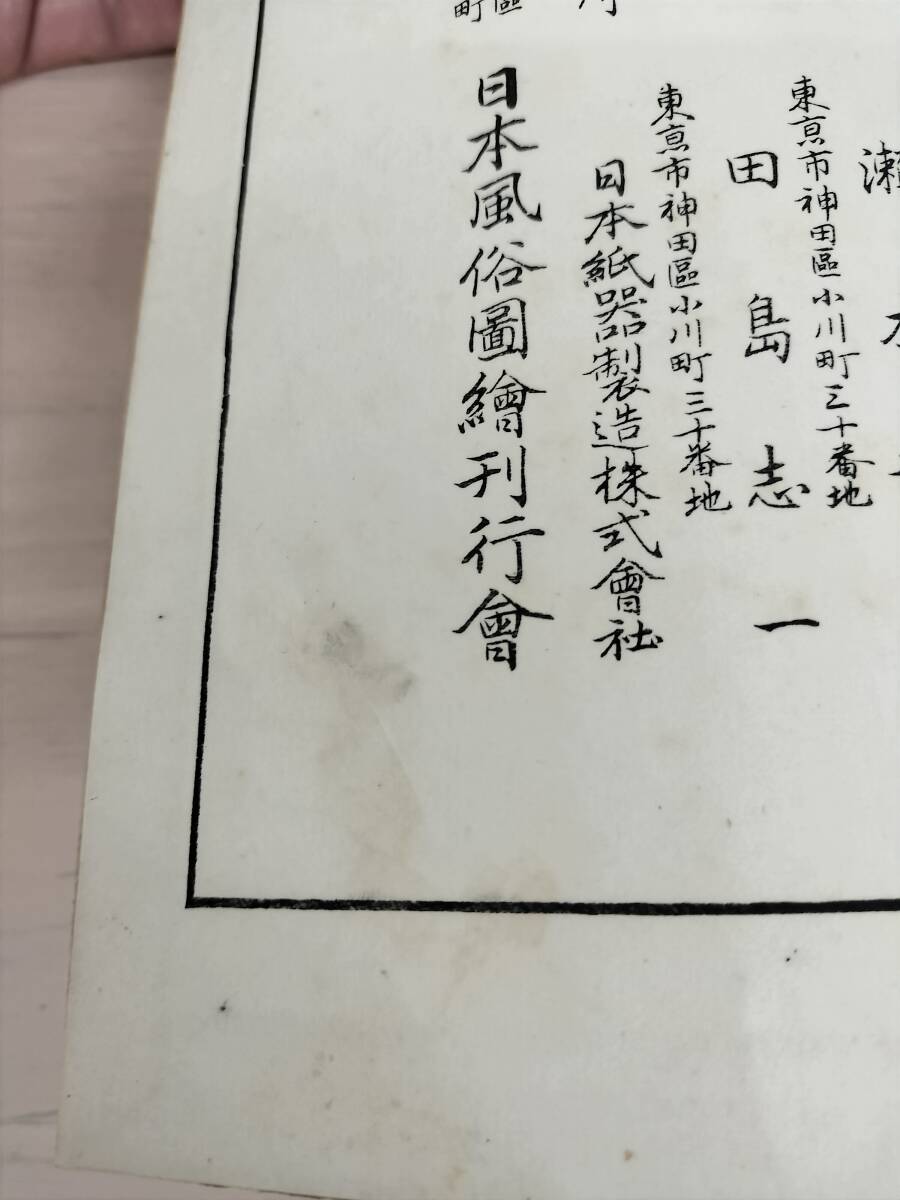 瀨
東京市神田區小川町三十番地
田島志一
東京市神田區小川町三十番地
日本紙器製造株式會社
區
町
日本風俗圖繪刊行會